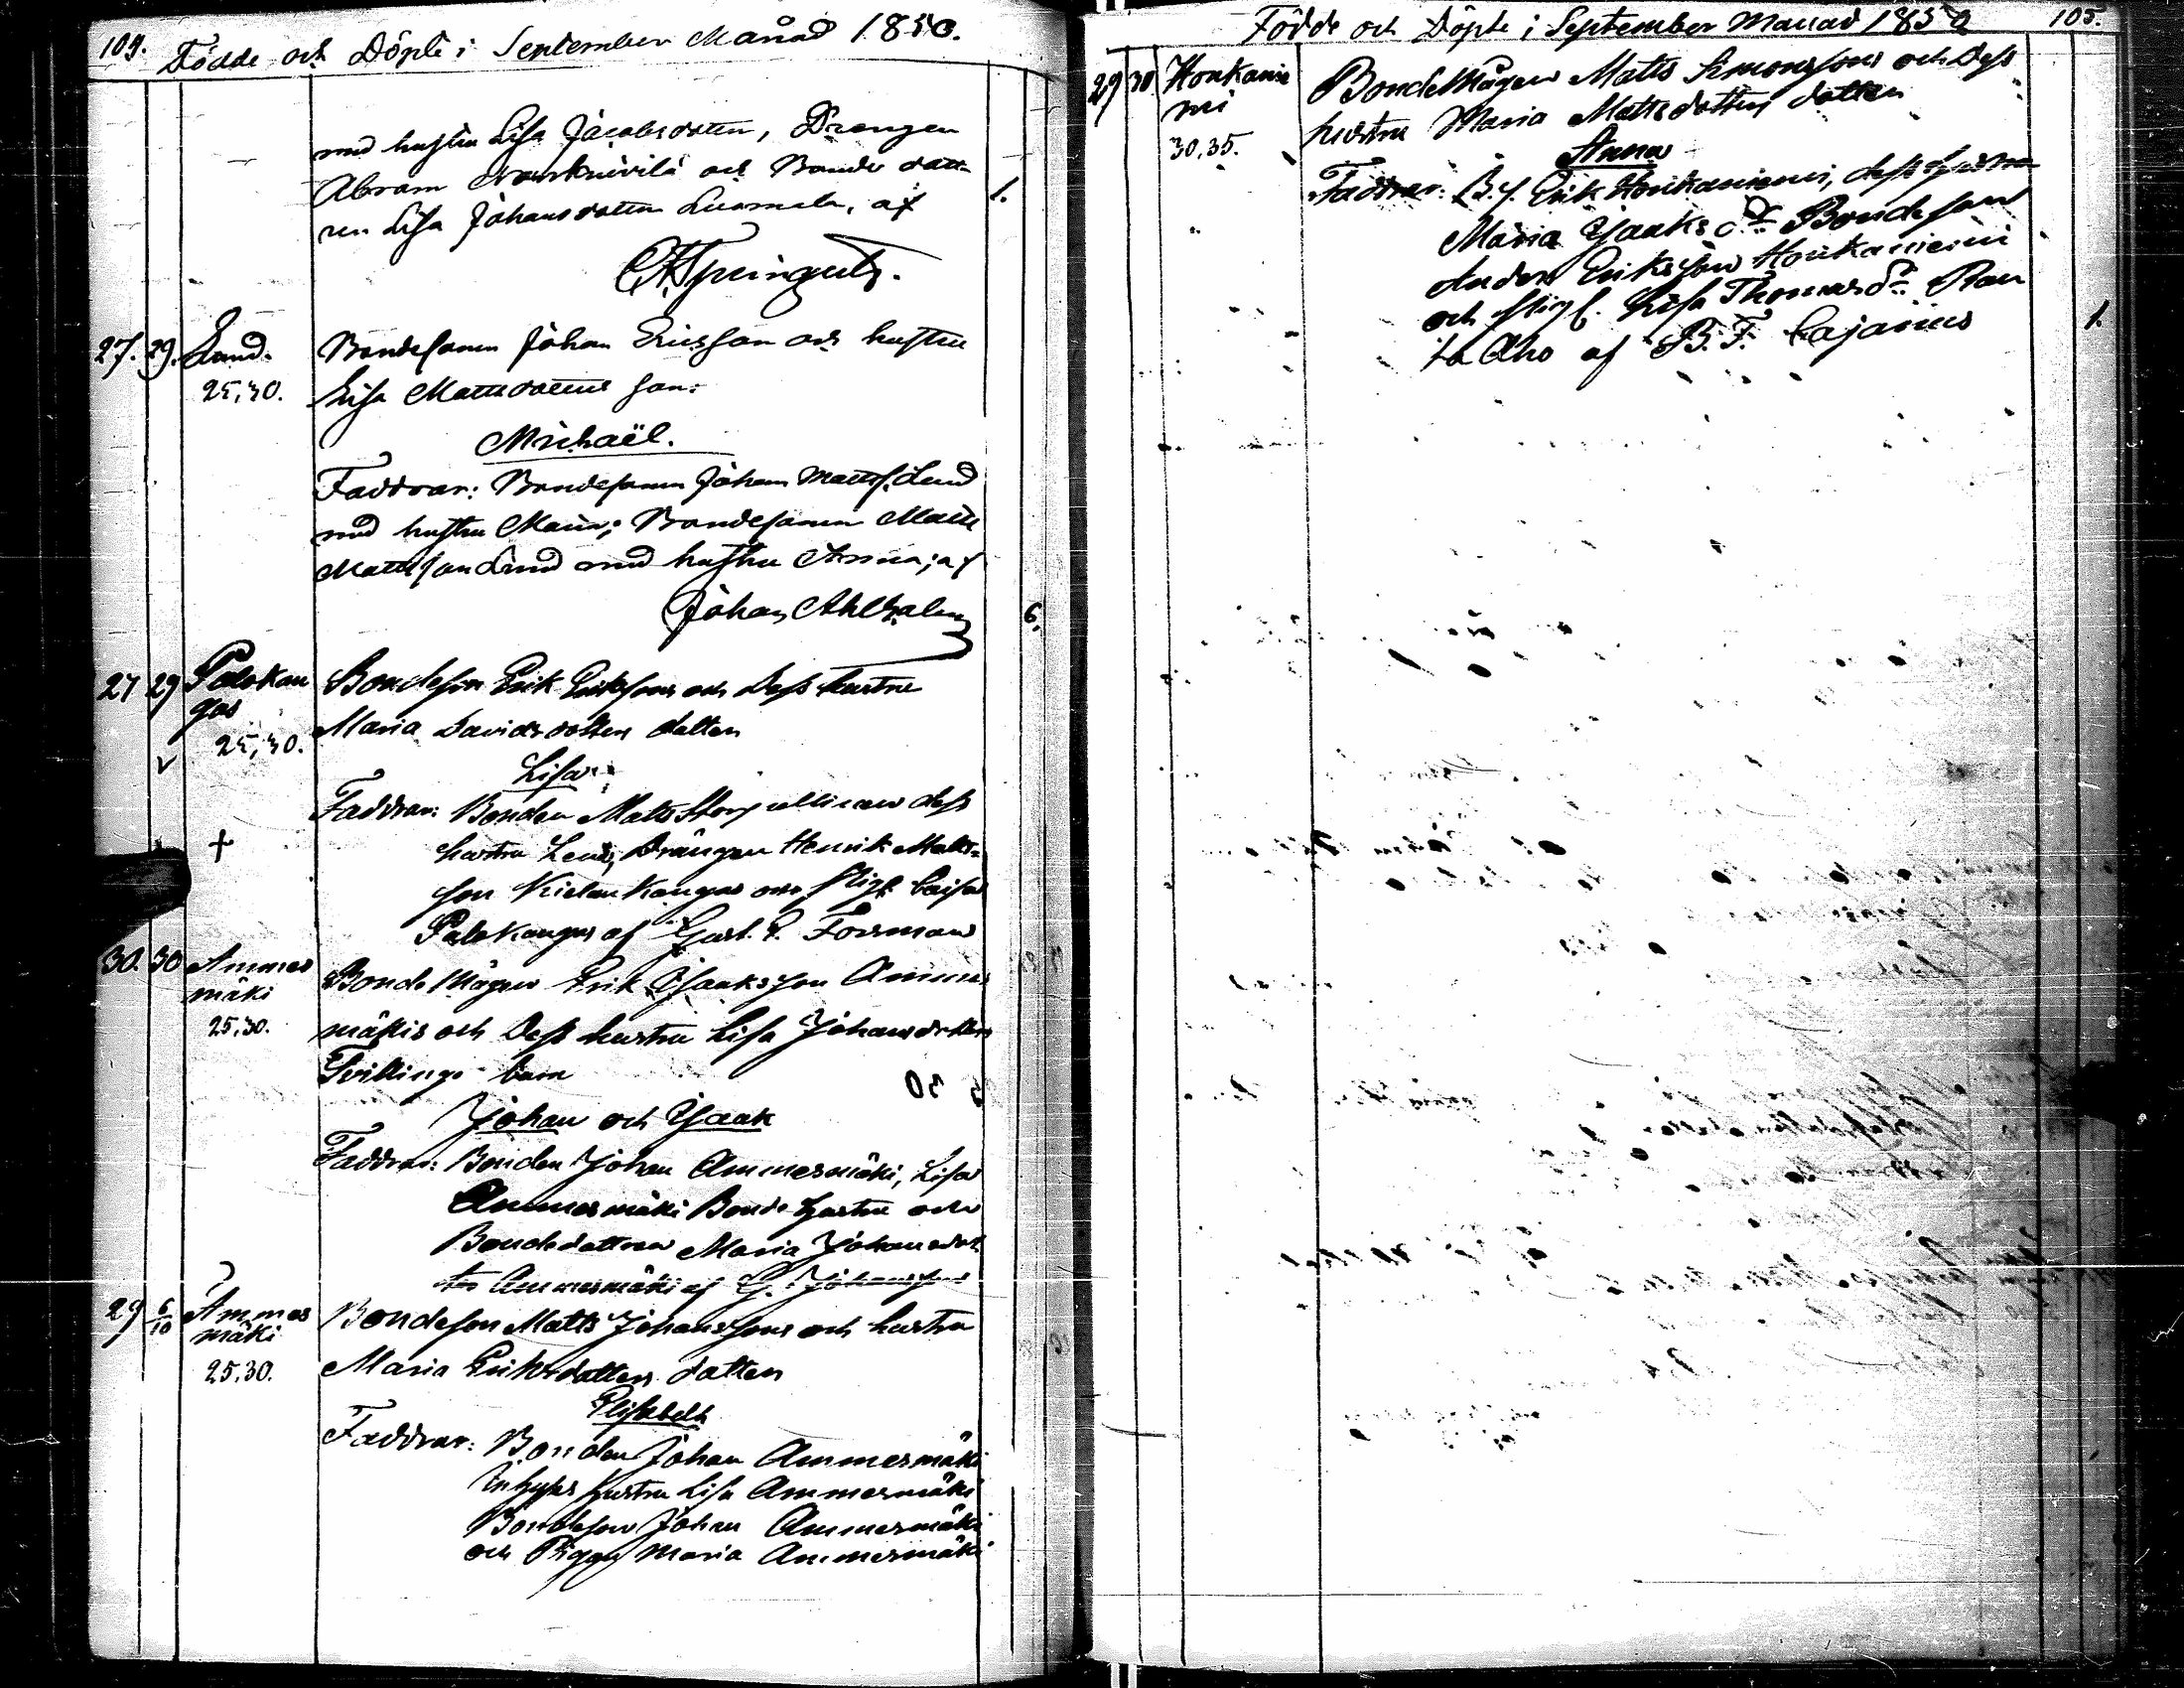 104.
Födde och Döpte i September Månad 1850.
med hustru Lisa Jacobsdotter, Drengen
Abram och Bonde dott=
ren Lisa Johansdotter Luomala, af
1.
27. 29. Lund.
25,30.
Bondesonen Johan Ericsson och hustru
Lisa Mattsdotters son:
Michaël.
Faddrar: Bondesonen Johan Matts. Lund
med hustru Maria; Bondesonen Matts
Mattsson Lund med hustru Anna; af
Johan Ahlholm
6.
27 29 Palokan
gas
25,30.
Bondeson Erik Erikssons och Dess hustru
Maria Davidsdotters dotter
Lisa
Faddrar: Bonden Matts dess
hustru Lena, Drängen Henrik Matts=
son Kielan Kangas och Caisa
Palokangas af Gust. E. Forsman
†
30. 30 Ammes
mäki
25.30.
Bonde Mågen Erik Isaksson Ammes
mäkis och Dess hustru Lisa Johansdotters
Tvillinge barn
Johan och Isaak
Faddrar: Bonden Johan Ammesmäki, Lisa
Ammesmäki Bonde hustru och
Bondedottren Maria Johansdot
ter Ammesmäki af G. Johansson
29 6/10 Ammes
mäki
25.30.
Bondeson Matts Johanssons och hustru
Maria Eriksdotters dotter
Elisabeth
Faddrar: Bonden Johan Ammesmäki
Inhyses hustru Lisa Ammesmäki
Bondeson Johan Ammesmäki
och Pigan Maria Ammesmäki
Födde och Döpte i September Månad 1850
105.
29 30. Honkanie
mi
30,35.
BondeMågen Matts Simonssons och Dess
hustru Maria Mattsdotters dotter
Anna
Faddrar: B.s. Erik Honkaniemi, dess hustru
Maria Isaks dr Bondeson
Anders Eriksson Honkaniemi
och Lisa Thomasdr Ran
ta Aho af B. F. Cajanus
1.